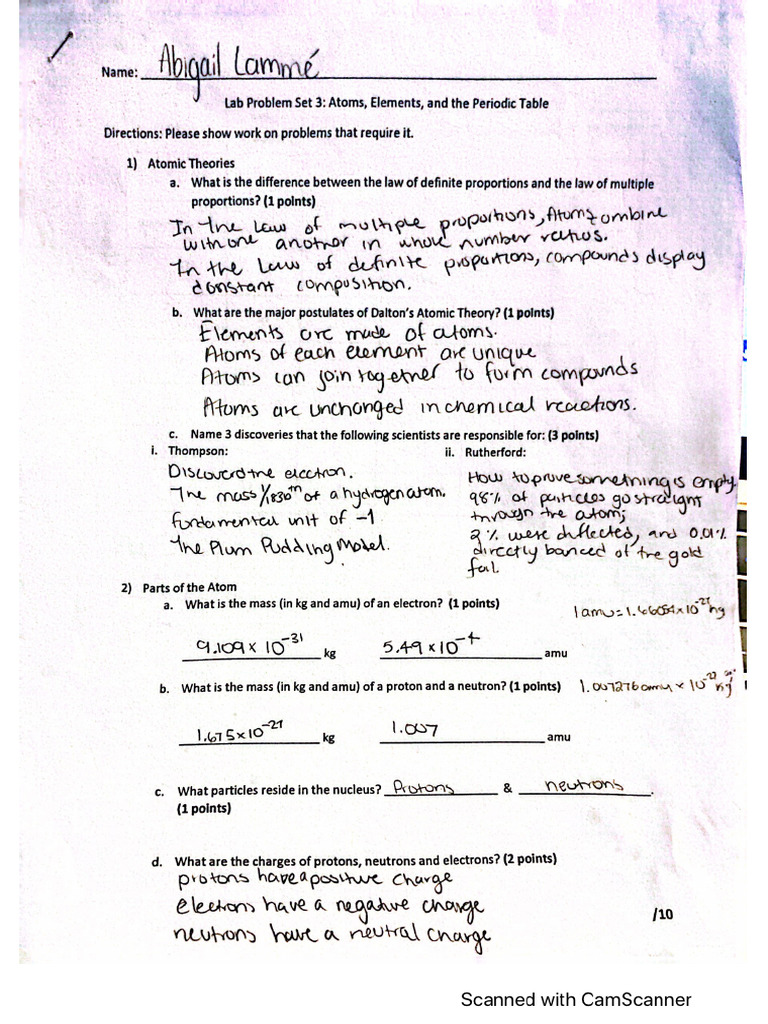 Name: Abigail Lammé
Lab Problem Set 3: Atoms, Elements, and the Periodic Table
Directions: Please show work on problems that require it.
1) Atomic Theories
a. What is the difference between the law of definite proportions and the law of multiple
proportions? (1 points)
In the law of multiple proportions, Atoms combine
with one another in whole number ratios.
In the law of definite proportions, compounds display
constant composition.
b. What are the major postulates of Dalton's Atomic Theory? (1 points)
Elements are made of atoms.
Atoms of each element are unique
Atoms can join together to form compounds
Atoms are unchanged in chemical reactions.
c. Name 3 discoveries that the following scientists are responsible for: (3 points)
i. Thompson:
Discoverd the electron.
The mass 1/1836th of a hydrogen atom.
fundamental unit of -1
The Plum Pudding Model.
ii. Rutherford:
How to prove something is empty.
98% of particles go straight
through the atom;
2% were deflected, and 0.01%
directly banced of the gold
foil.
2) Parts of the Atom
a. What is the mass (in kg and amu) of an electron? (1 points)
1 amu = 1.66054 x 10⁻²⁷ kg
9.109 x 10⁻³¹ kg 5.49 x 10⁻⁴ amu
b. What is the mass (in kg and amu) of a proton and a neutron? (1 points)
1.007276 amu x 10⁻²⁷ kg
1.675 x 10⁻²⁷ kg 1.007 amu
c. What particles reside in the nucleus? Protons & neutrons.
(1 points)
d. What are the charges of protons, neutrons and electrons? (2 points)
protons have a positive charge
electrons have a negative charge
neutrons have a neutral charge
/10
Scanned with CamScanner